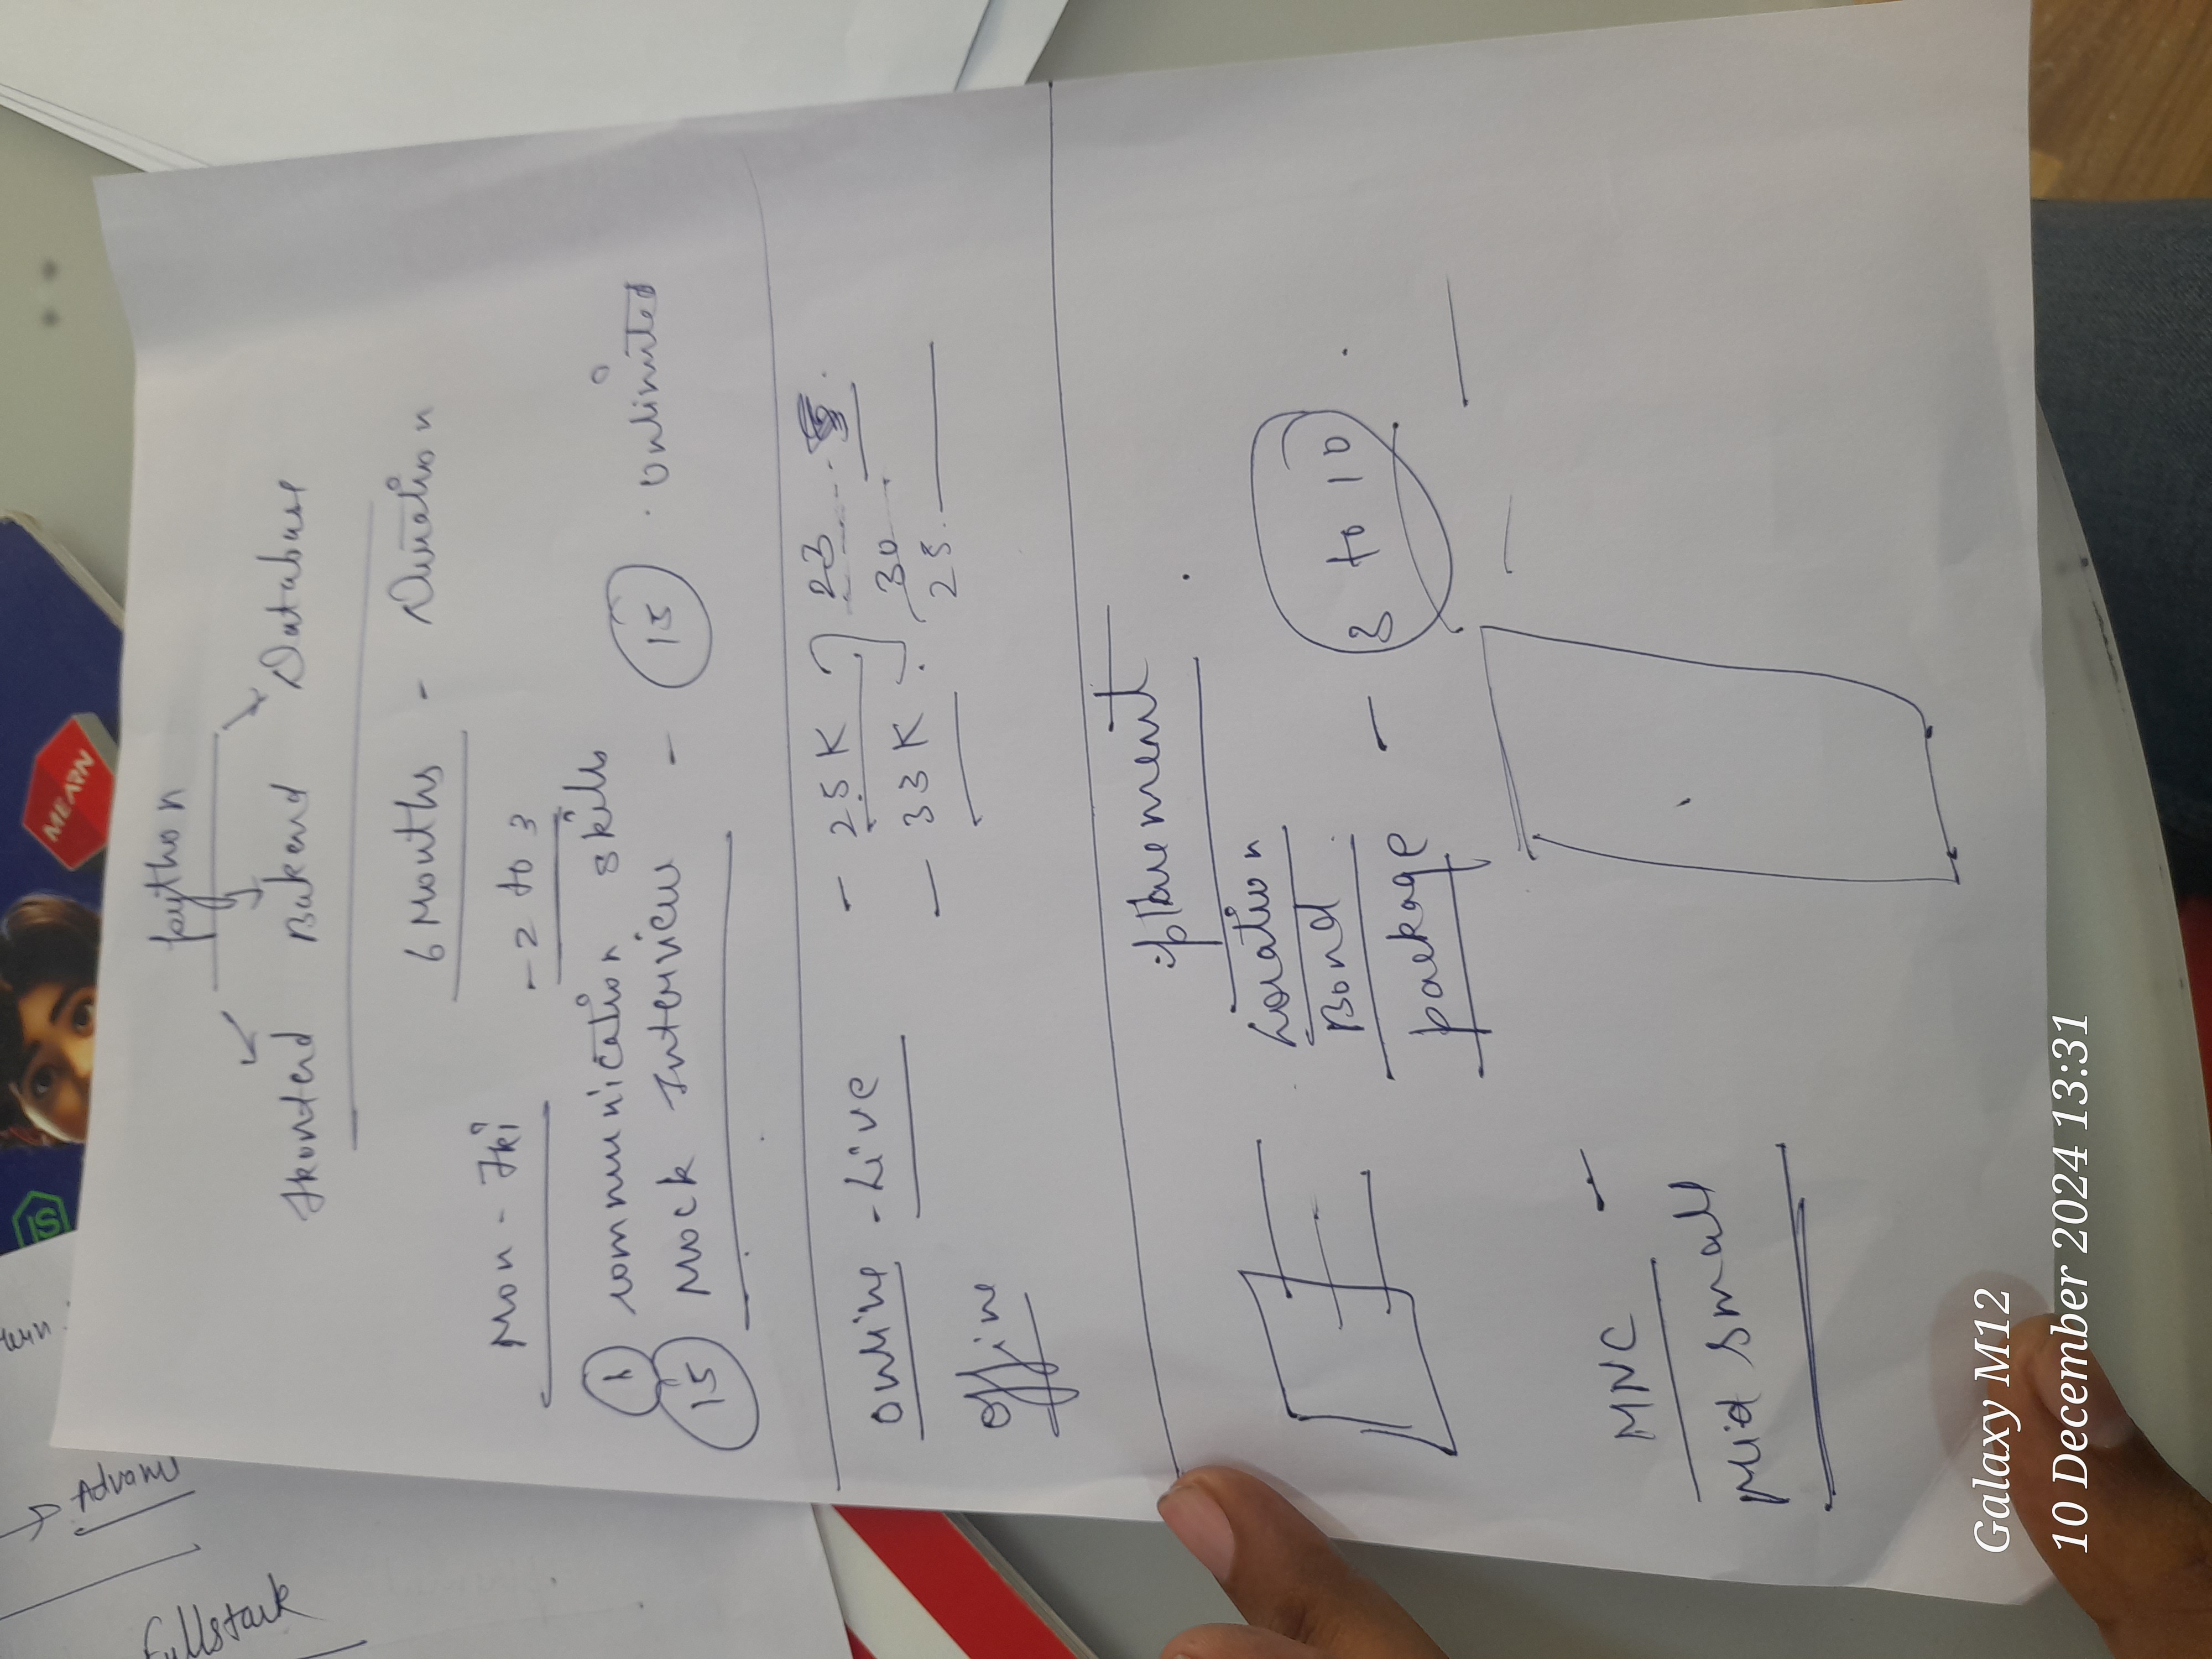 python
Frontend Bakend Database
6 Months - Duration
Mon - Fri - 2 to 3
1 communication skills
15 Mock Interview - 15 . unlimited
Online - Live - 25 K 23
- 33 K 30
offline 25
placement
Location
Bond
package - 3 to 10
MNC -
Mid small
Advanc
Fullstack
MEARN
JS
Galaxy M12
10 December 2024 13:31